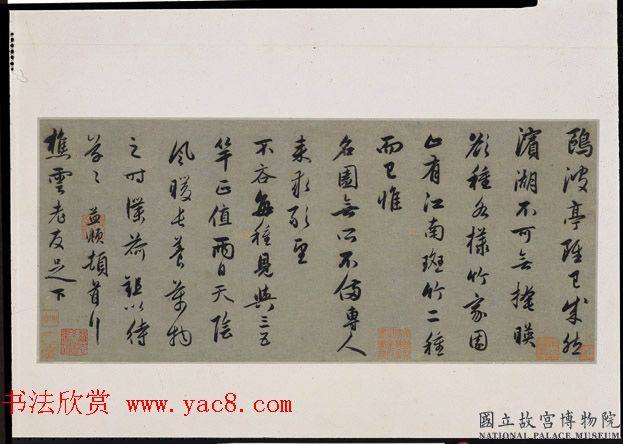 鷗波亭雖已成然
濱湖不可無掩暎
欲種各樣竹家園
止有江南斑竹二種
而已惟
名園無所不備專人
來求敢望
不吝每種見與三五
竿正值兩日天陰
風暖長養萬物
之時謹荷鉏以待
草〻益順頓首
樵雲老友足下
书法欣赏 www.yac8.com
國立故宮博物院
NATIONAL PALACE MUSEUM